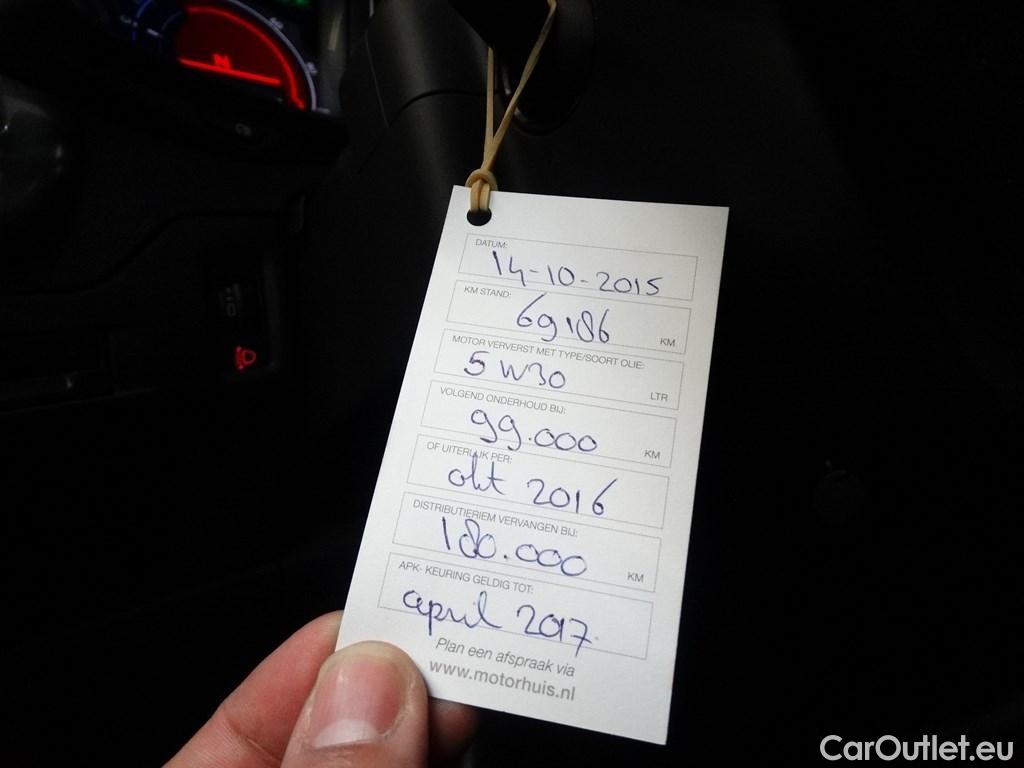 DATUM:
14-10-2015
KM STAND:
69186 KM
MOTOR VERVERST MET TYPE/SOORT OLIE:
5W30 LTR
VOLGEND ONDERHOUD BIJ:
99.000 KM
OF UITERLIJK PER:
okt 2016
DISTRIBUTIERIEM VERVANGEN BIJ:
180.000 KM
APK- KEURING GELDIG TOT:
april 2017.
Plan een afspraak via
www.motorhuis.nl
CarOutlet.eu